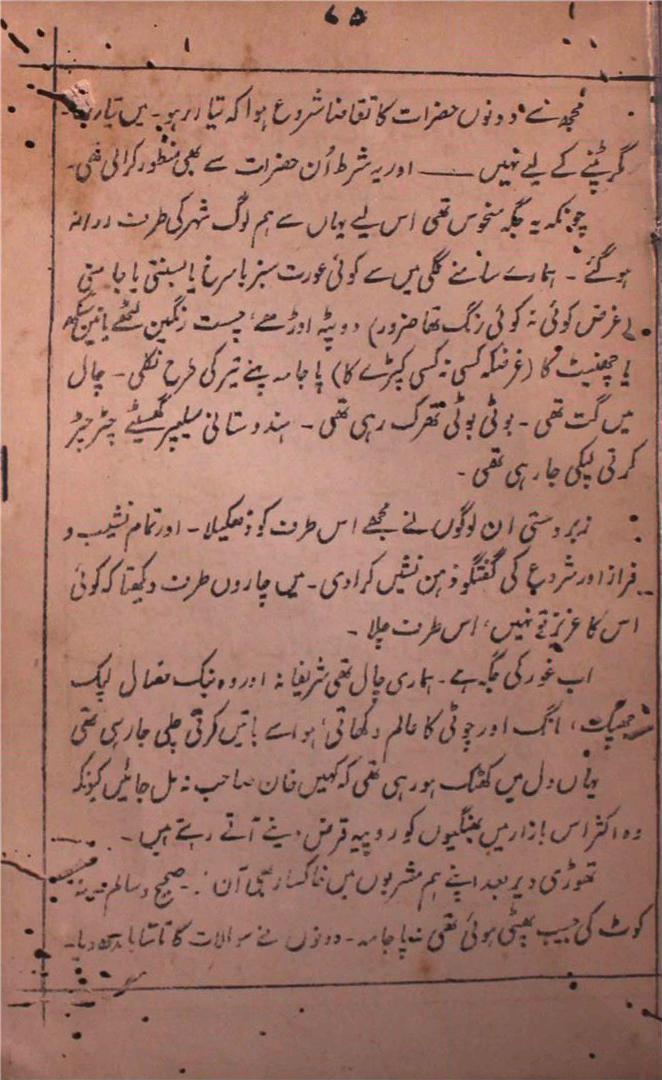 ۶۵
مجھ سے دونوں حضرات کا تقاضا شروع ہوا کہ تیار ہو۔ میں تیار تھا۔
مگر پٹنے کے لیے نہیں ــــ اور یہ شرط اُن حضرات سے بھی منظور کرالی تھی۔
چونکہ یہ جگہ منحوس تھی اس لیے یہاں سے ہم لوگ شہر کی طرف روانہ
ہو گئے۔ ہمارے سامنے گلی میں سے کوئی عورت سبز یا سرخ یا بسنتی یا جامنی
(غرض کوئی نہ کوئی رنگ تھا ضرور) دوپٹہ اوڑھے، چست رنگین لٹھے یا تین سکھ
یا چھینٹ کا (غرضکہ کسی نہ کسی کپڑے کا) پاجامہ پہنے تیر کی طرح نکلی۔ چال
میں گت تھی۔ بوٹی بوٹی تھرک رہی تھی۔ ہندوستانی سلیپر گھسیٹے چٹر چٹر
کرتی لپکی جا رہی تھی۔
زبردستی ان لوگوں نے مجھے اس طرف کو دھکیلا۔ اور تمام نشیب و
فراز اور شروع کی گفتگو ذہن نشیں کرا دی۔ میں چاروں طرف دیکھتا کہ کوئی
اس کا عزیز تو نہیں، اس طرف چلا۔
اب غور کی جگہ ہے۔ ہماری چال تھی شریفانہ اور وہ نیک فعال لپک
جھپک، مانگ اور چوٹی کا عالم دکھاتی، ہوا سے باتیں کرتی چلی جا رہی تھی
یہاں دل میں کھٹک ہو رہی تھی کہ کہیں خان صاحب نہ مل جائیں کیونکہ
وہ اکثر اس بازار میں بھنگیوں کو روپیہ قرض دینے آتے رہتے ہیں۔
تھوڑی دیر بعد اپنے ہم مشربوں میں خاکسار بھی آن صحیح و سالم
کوٹ کی جیب پھٹی ہوئی تھی نہ پاجامہ۔ دونوں نے سوالات کا تانتا باندھ دیا۔